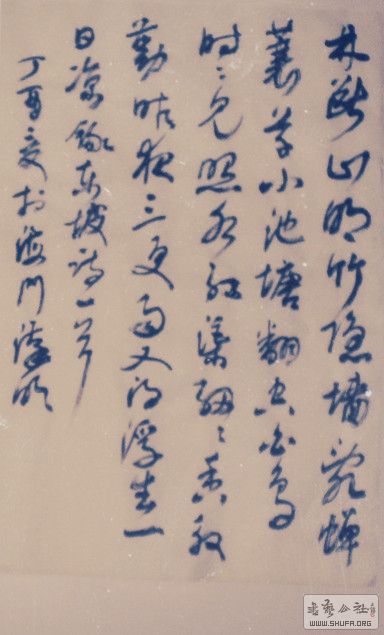 林断山明竹隐墙乱蝉
衰草小池塘翻空白鸟
时々见照水红蕖细々香殷
勤昨夜三更雨又得浮生一
日凉录东坡诗一首
丁酉夏于海门
书艺公社
WWW.SHUFA.ORG